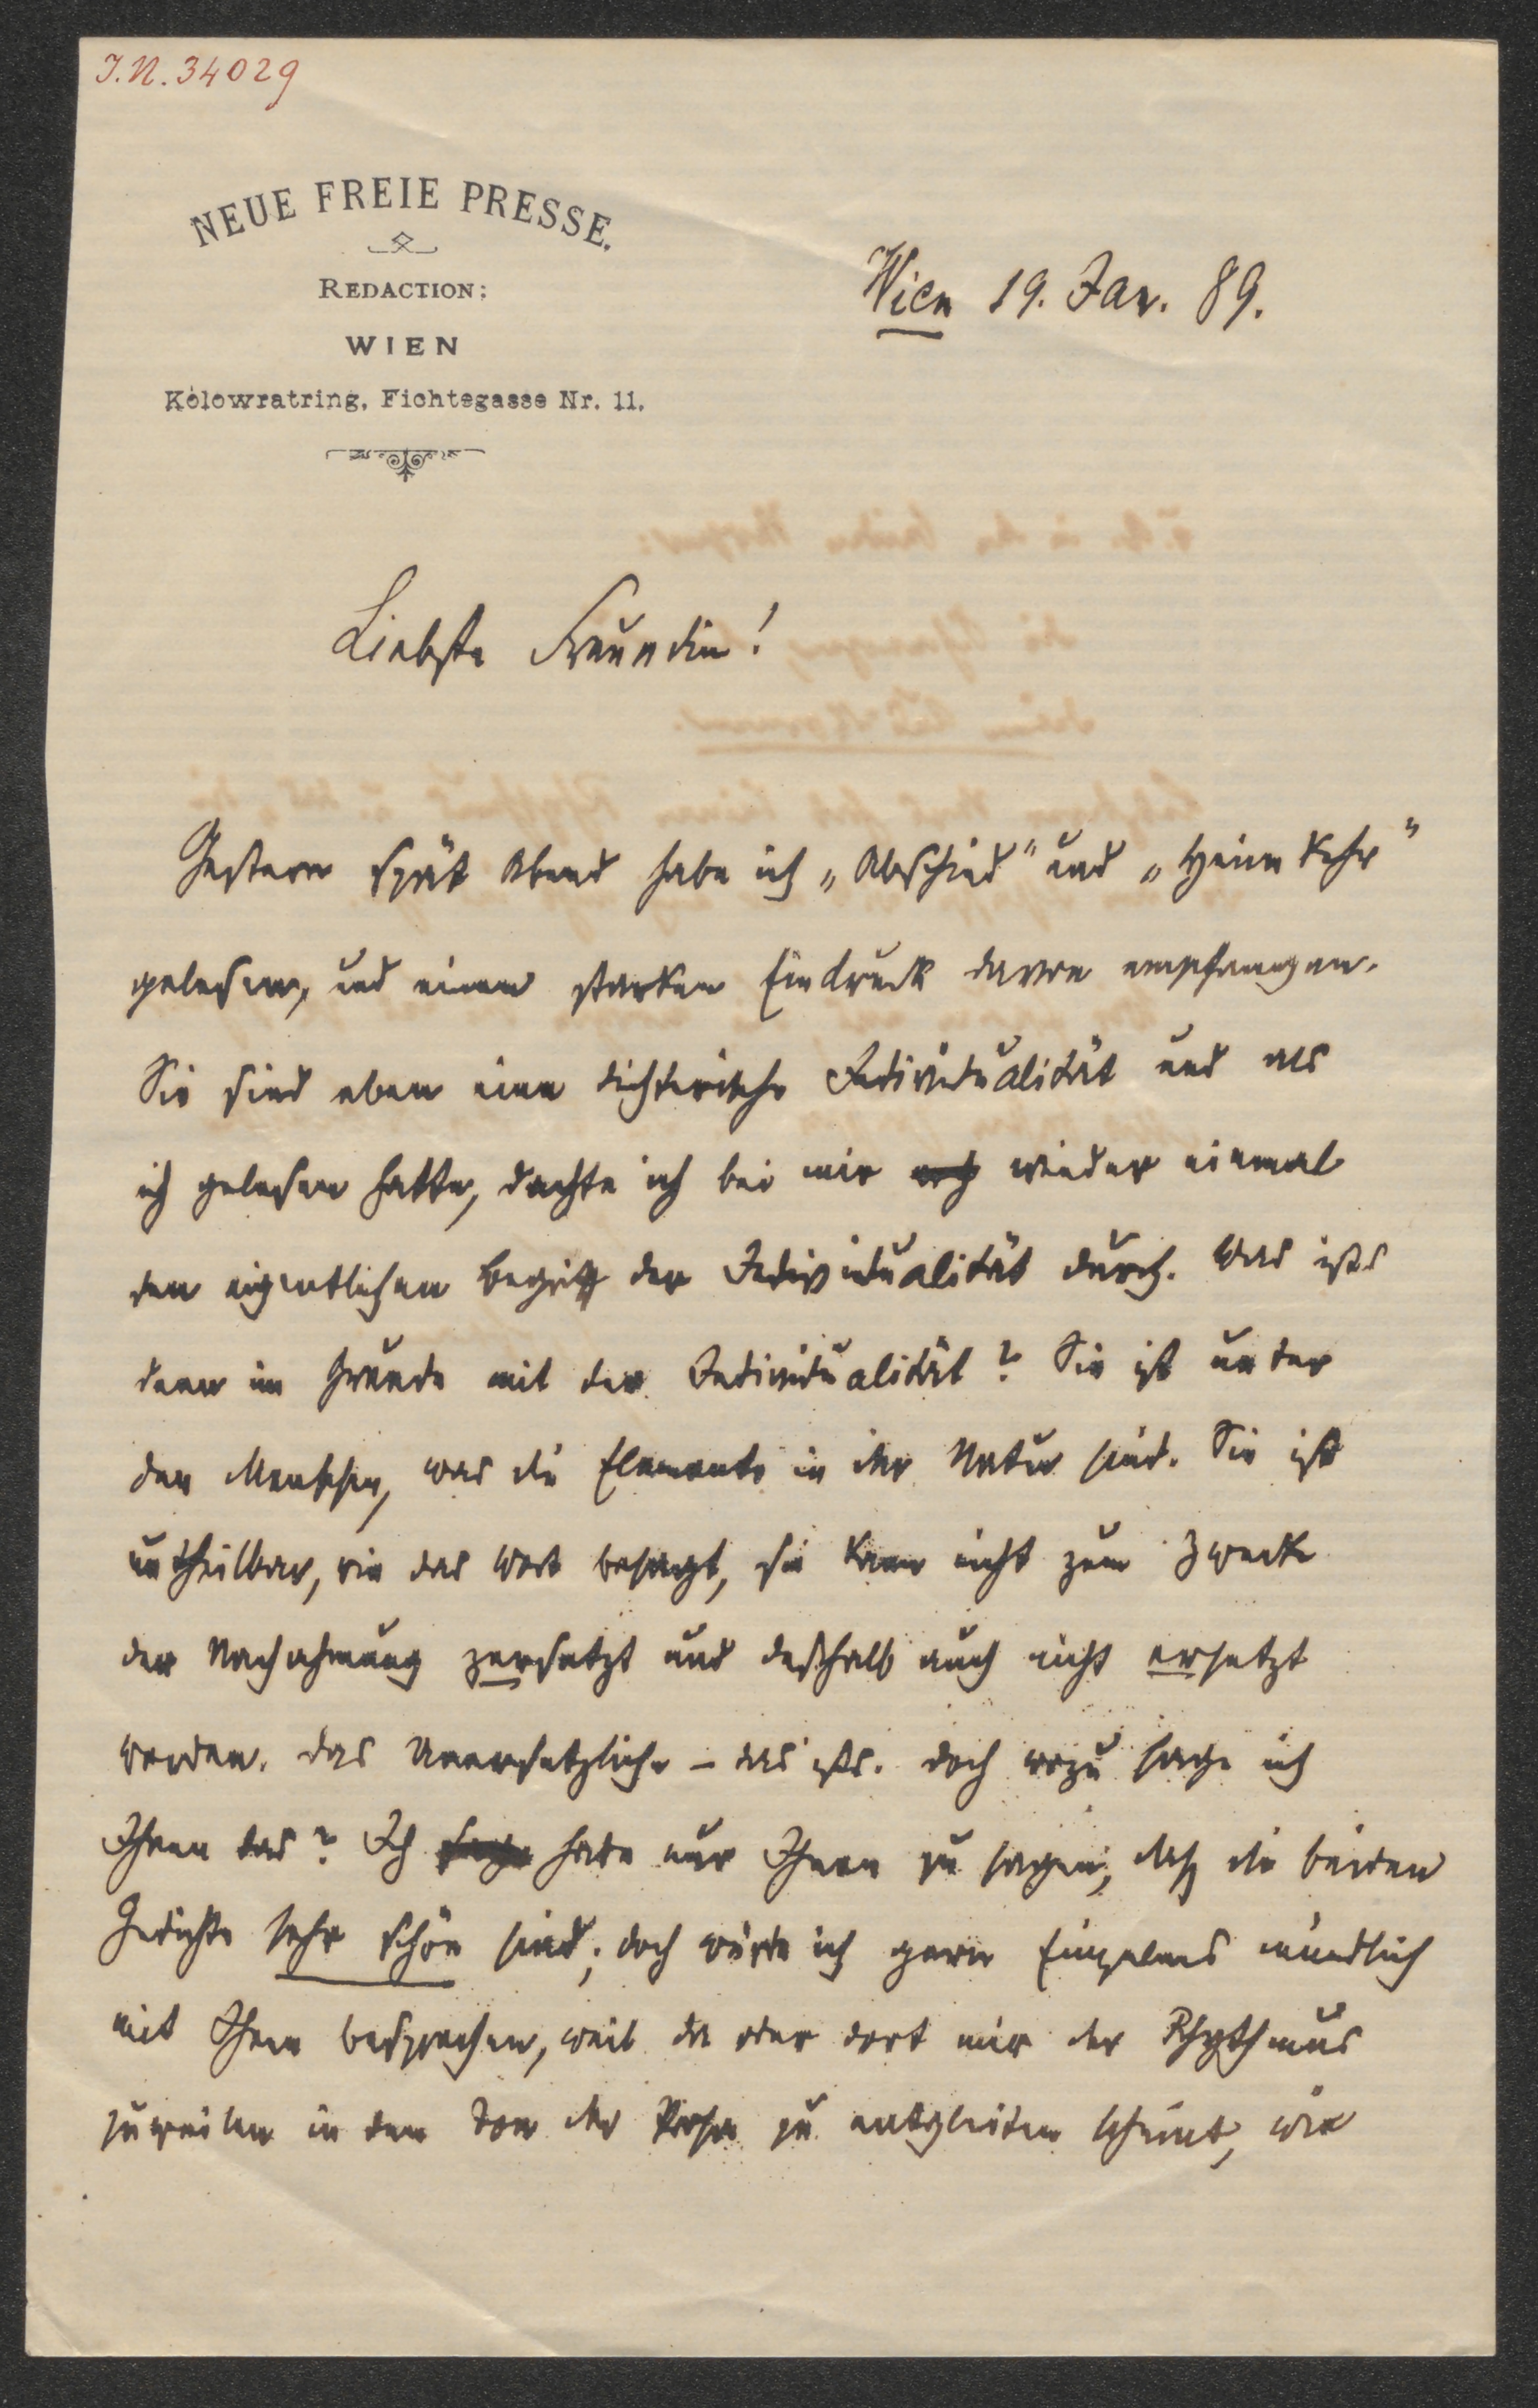 J.N. 34029
NEUE FREIE PRESSE.
REDACTION:
WIEN
Kolowratring, Fichtegasse Nr. 11.
Wien 19. Jan. 89.
Liebste Freundin!
Gestern spät Abend habe ich „Abschied" und „Heimkehr"
gelesen, und einen starken Eindruck davon empfangen.
Sie sind eben eine dichterische Individualität und als
ich gelesen hatte, dachte ich bei mir wieder einmal
den eigentlichen Begriff der Individualität durch. Was ists
denn im Grunde mit der Individualität? Sie ist unter
den Menschen, was die Elemente in der Natur sind. Sie ist
untheilbar, wie das Wort besagt, sie kann nicht zum Zwecke
der Nachahmung zersetzt und deßhalb auch nicht ersetzt
werden. Das Unersetzliche – das ists. Doch wozu sage ich
Ihnen das? Ich sage habe nur Ihnen zu sagen, daß die beiden
Gedichte sehr schön sind; doch würde ich gern Einzelnes mündlich
mit Ihnen besprechen, weil da oder dort mir der Rhythmus
zuweilen in den Ton der Prosa zu entgleiten scheint, wie